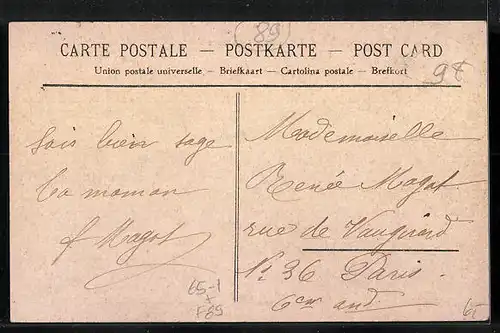 (89)
CARTE POSTALE — POSTKARTE — POST CARD
Union postale universelle — Briefkaart — Cartolina postale — Brefkort
9€
Sois bien sage
ta maman
f Magot
Mademoiselle
Renée Magot
rue de Vaugirard
No 36 Paris.
6em
65-1
F89